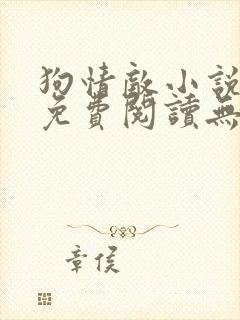 狗情敵小說
免費閱讀無
章侯